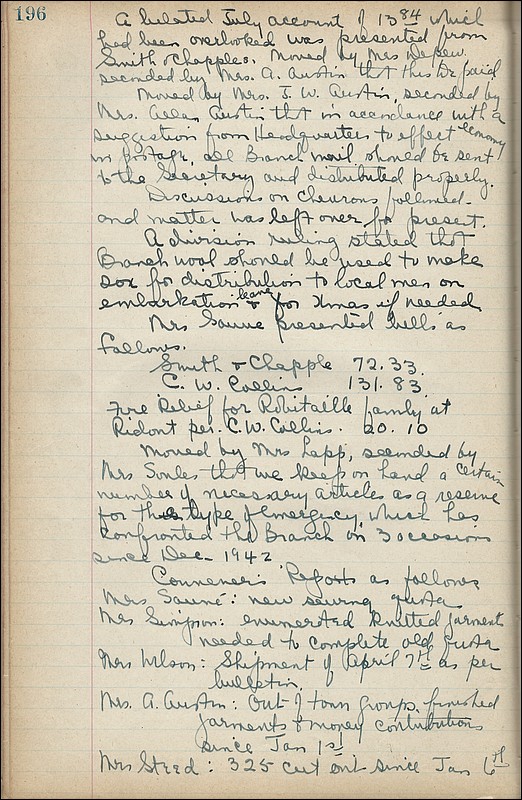 196
A belated July account of 13 84 which
had been overlooked was presented from
Smith & Chapples. Moved by Mrs Depew
seconded by Mrs. A. Austin that this be paid
Moved by Mrs. J. W. Austin, seconded by
Mrs. Allan Austin that in accordance with a
suggestion from Headquarters to effect economy
in postage, all Branch mail should be sent
to the Secretary and distributed properly.
Discussions on Chevrons followed
and matter was left over for present.
A division ruling stated that
Branch wool should be used to make
sox for distribution to local men on
embarkation leave & for Xmas if needed
Mrs Saune presented bills as
follows.
Smith & Chapple 72.33.
C. W. Collins 131.83.
Fire Relief for Robitaille family at
Ridont per. C. W. Collins. 20.10
Moved by Mrs Lapp, seconded by
Mrs Soules that we keep on hand a certain
number of necessary articles as a reserve
for this type of emergency, which has
confronted the Branch on 3 occasions
since Dec 1942
Convener's Reports as follows
Mrs Saune: new sewing quota
Mrs Simpson: enumerated knitted garments
needed to complete old quota
Mrs Wilson: Shipment of April 7th as per
bulletin.
Mrs. A. Austin: Out of town groups, finished
garments & money contributions
since Jan 1st
Mrs Steed: 325 cut out since Jan 6th